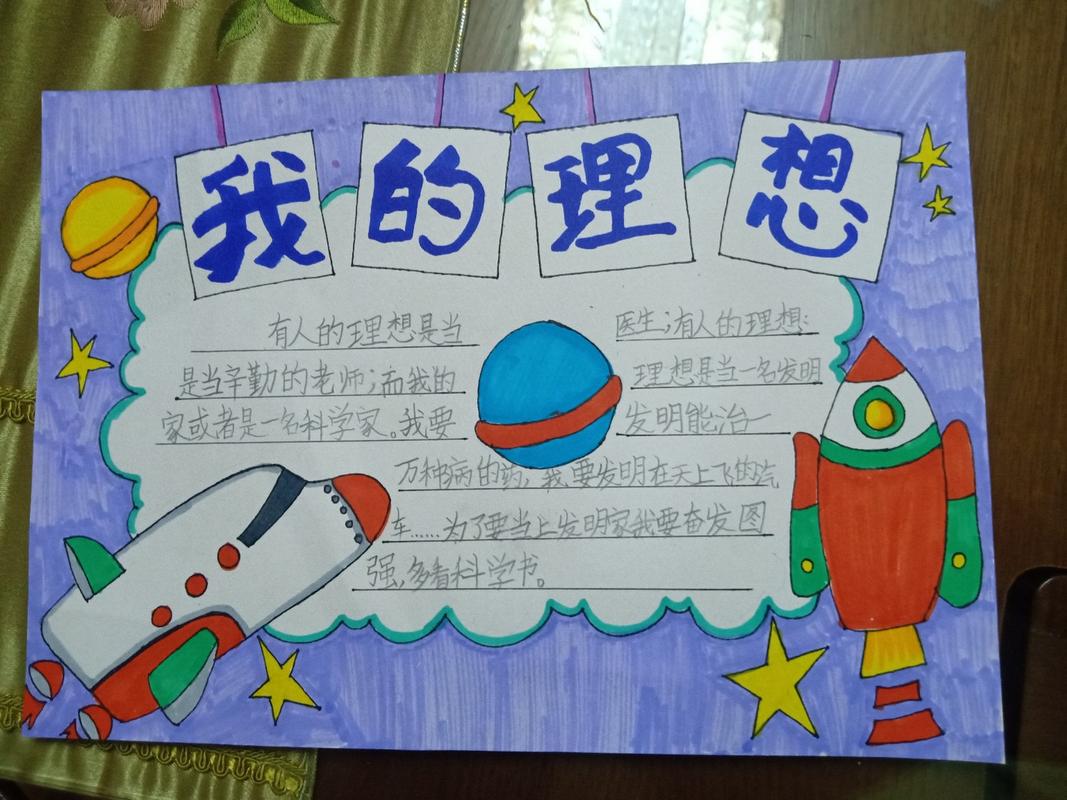 我的理想
有人的理想是当医生；有人的理想：
是当辛勤的老师；而我的理想是当一名发明
家或者是一名科学家。我要发明能治一
万种病的药，我要发明在天上飞的汽
车……为了要当上发明家我要奋发图
强，多看科学书。